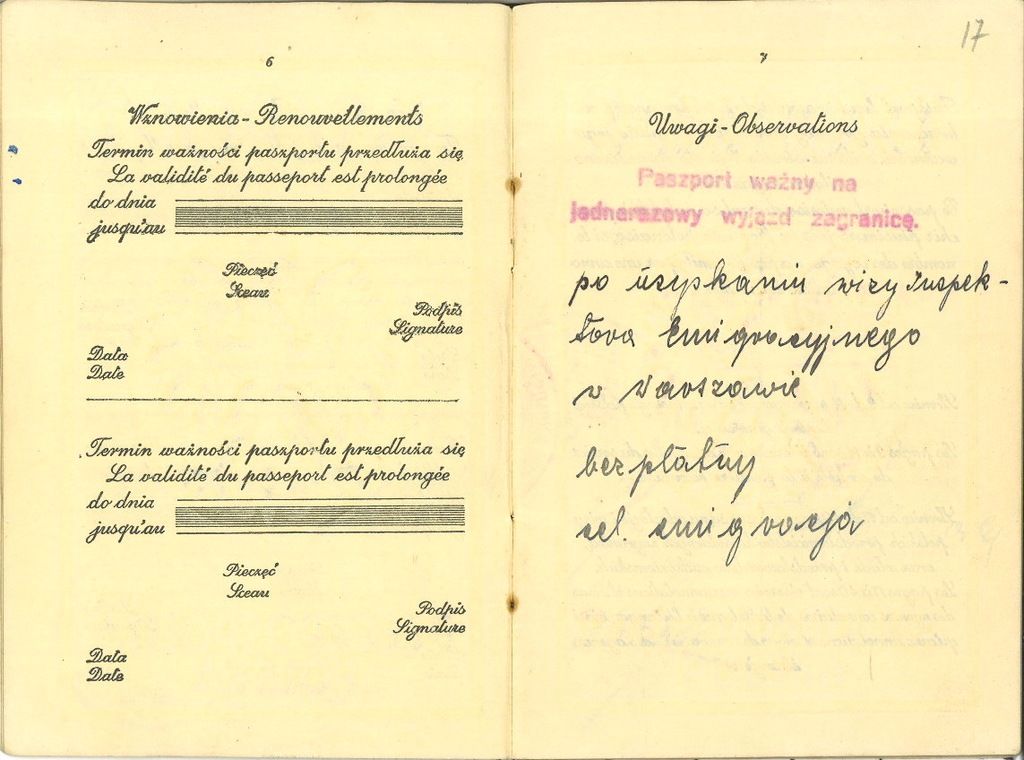 6
Wznowienia - Renouvellements
Termin ważności paszportu przedłuża się
La validité du passeport est prolongée
do dnia
jusqu'au
Pieczęć
Sceau
Podpis
Signature
Data
Date
Termin ważności paszportu przedłuża się
La validité du passeport est prolongée
do dnia
jusqu'au
Pieczęć
Sceau
Podpis
Signature
Data
Date
17
7
Uwagi - Observations
Paszport ważny na
jednorazowy wyjazd zagranicę.
po uzyskaniu wizy Inspek-
tora Emigracyjnego
w Warszawie
bezpłatny
cel. emigracja